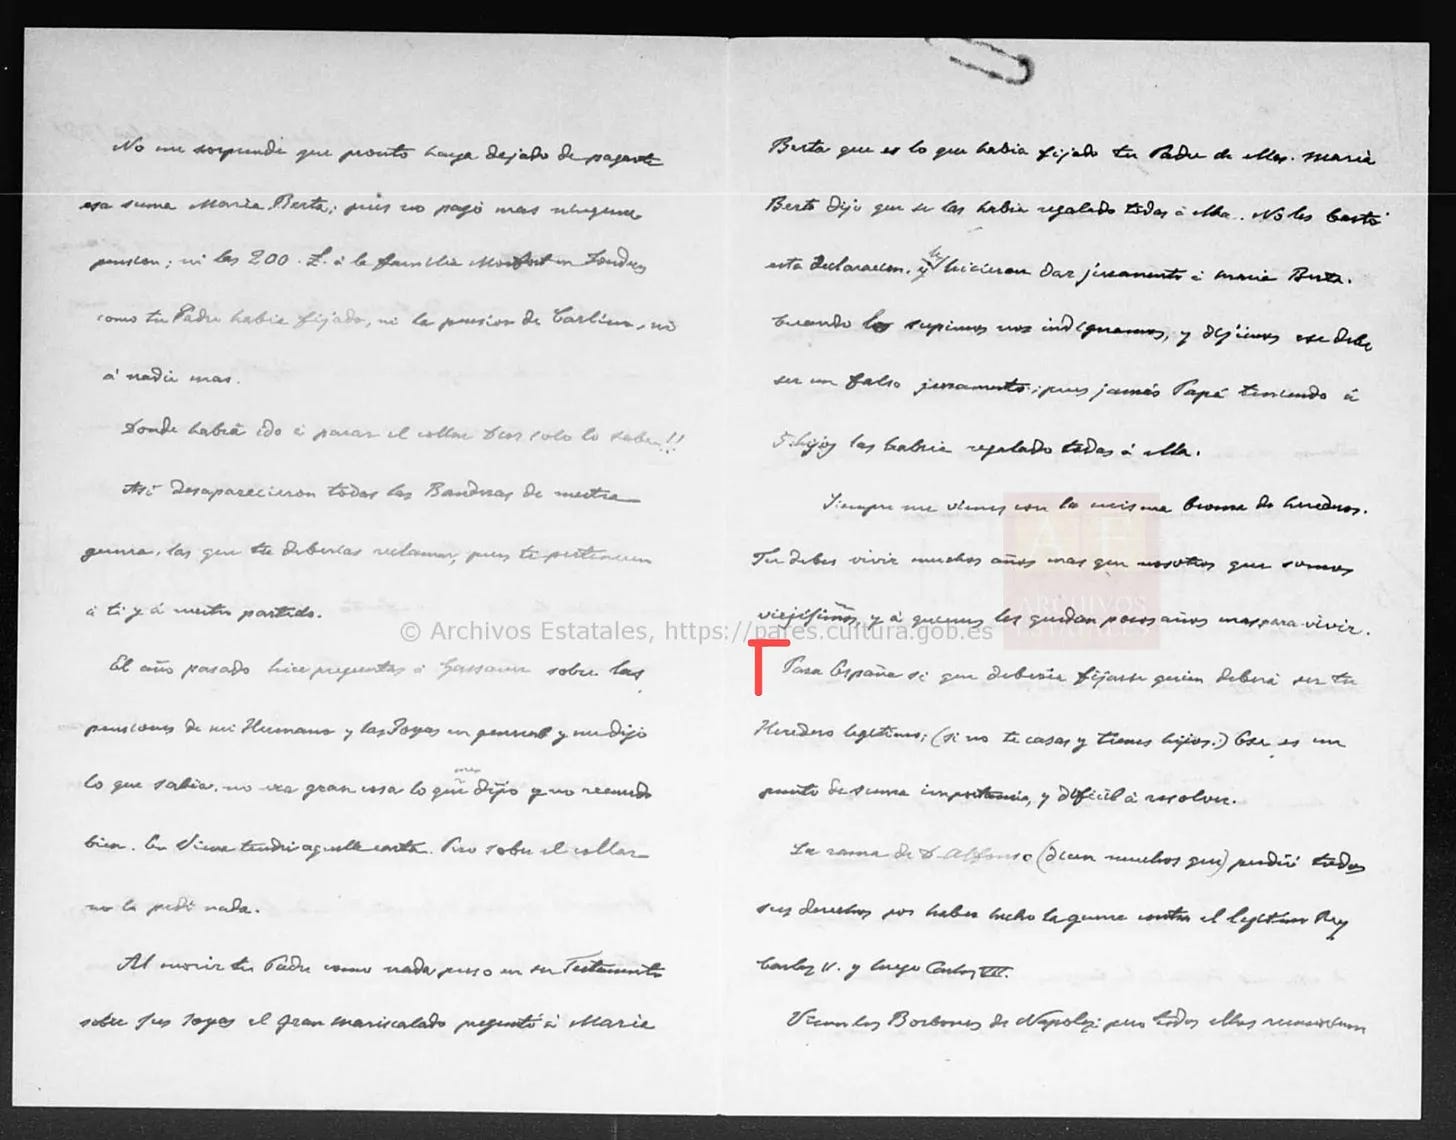 No me sorprende que pronto haya dejado de pagarte
esa suma Maria Berta; pues no pagó mas ninguna
pension; ni las 200. L. á la familia Monfort en Londres
como tu Padre habia fijado, ni la pension de Carlina, ni
á nadie mas.
Donde habrá ido á parar el collar Dios solo lo sabe!!
Asi desaparecieron todas las Banderas de nuestra
guerra, las que tu deberias reclamar, pues te pertenecen
á ti y á nuestro partido.
El año pasado hice preguntas á sobre las
pensiones de mi Hermano y las Joyas en general y me dijo
lo que sabia. no era gran cosa lo que me dijo y no recuerdo
bien. En Viena tendré aquella carta. Pero sobre el collar
no le pedí nada.
Al morir tu Padre como nada puso en su Testamento
sobre sus Joyas el gran mariscalado preguntó á Maria
Berta que es lo que habia fijado tu Padre de ellas. Maria
Berta dijo que se las habia regalado todas á ella. No les bastó
esta declaracion, y le hicieron dar juramento á Maria Berta.
Cuando los supimos nos indignamos, y dijimos ese debe
ser un falso juramento; pues jamás Papá teniendo á
5. hijos las habria regalado todas á ella.
Siempre me vienes con la misma broma de herederos.
Tu debes vivir muchos años mas que nosotros que somos
viejísimos, y á quienes les quedan pocos años mas para vivir.
Para España si que deberia fijarse quien deberá ser tu
Heredero legitimo; (si no te casas y tienes hijos.) Ese es un
punto de suma importancia, y dificil á resolver.
La rama de D. Alfonso (dicen muchos que) perdió todos
sus derechos por haber hecho la guerra contra el legitimo Rey
Carlos V. y luego Carlos VII.
Vienen los Borbones de Napoles; pero todos ellos reconocieron
© Archivos Estatales, https://pares.cultura.gob.es
AE
ARCHIVOS
ESTATALES